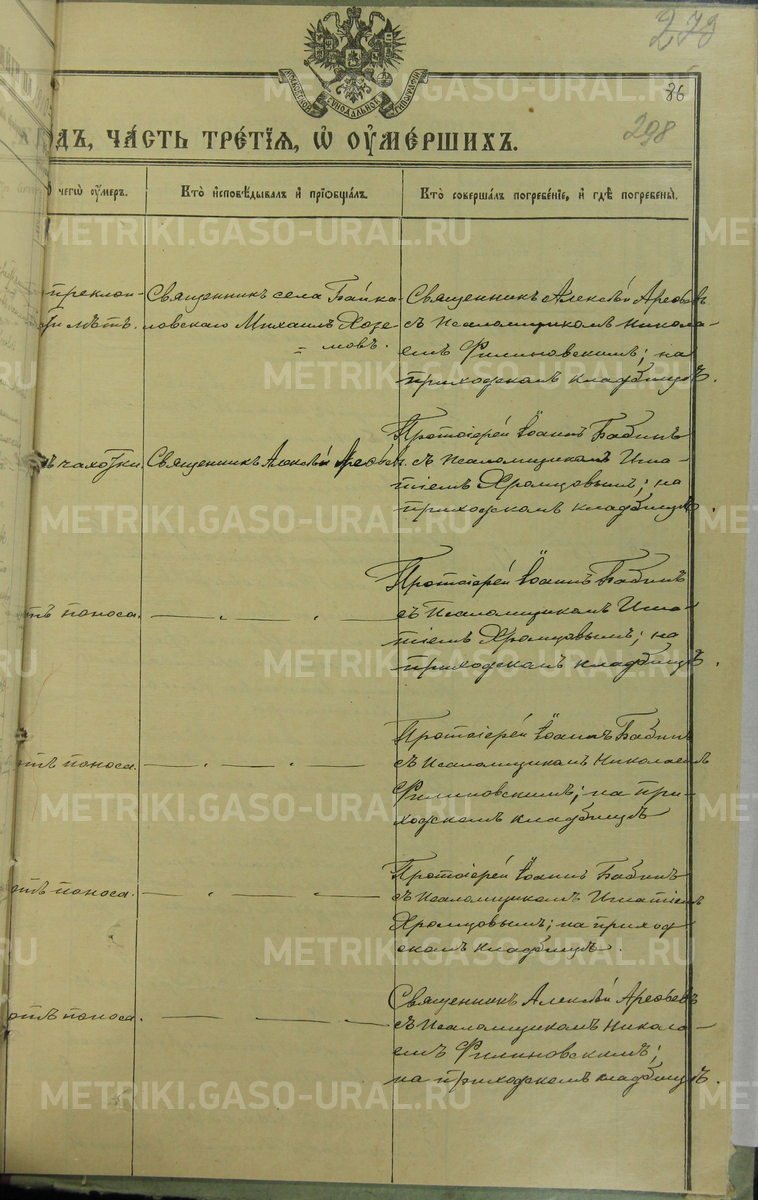 278
86
298
МОСКОВСКОЙ СУНОДАЛЬНОЙ ТИПОГРАФІИ
ОДЪ, ЧАСТЬ ТРЕТІЯ, Ѡ ОУМЕРШИХЪ.
чегѡ оумеръ.
Кто исповѣдывалъ и пріобщалъ.
Кто совершалъ погребеніе, и гдѣ погребены.
преклон-
лѣтъ.
Священникъ села Байка-
ловскаго Михаилъ
Священникъ Алексѣй
съ Псаломщикомъ Никола-
емъ Филиновскимъ; на
приходскомъ кладбищѣ.
чахотки.
Священникъ Алексѣй
Протоіерей Іоаннъ Бабинъ
съ Псаломщикомъ Игна-
тіемъ Хромцовымъ; на
приходскомъ кладбищѣ.
отъ поноса.
Протоіерей Іоаннъ Бабинъ
съ Псаломщикомъ Игна-
тіемъ Хромцовымъ; на
приходскомъ кладбищѣ.
отъ поноса.
Протоіерей Іоаннъ Бабинъ
съ Псаломщикомъ Николаемъ
Филиновскимъ; на при-
ходскомъ кладбищѣ
отъ поноса.
Протоіерей Іоаннъ Бабинъ
съ Псаломщикомъ Игнатіемъ
Хромцовымъ; на приход
скомъ кладбищѣ.
отъ поноса.
Священникъ Алексѣй
съ Псаломщикомъ Никола-
емъ Филиновскимъ;
на приходскомъ кладбищѣ.
METRIKI.GASO-URAL.RU